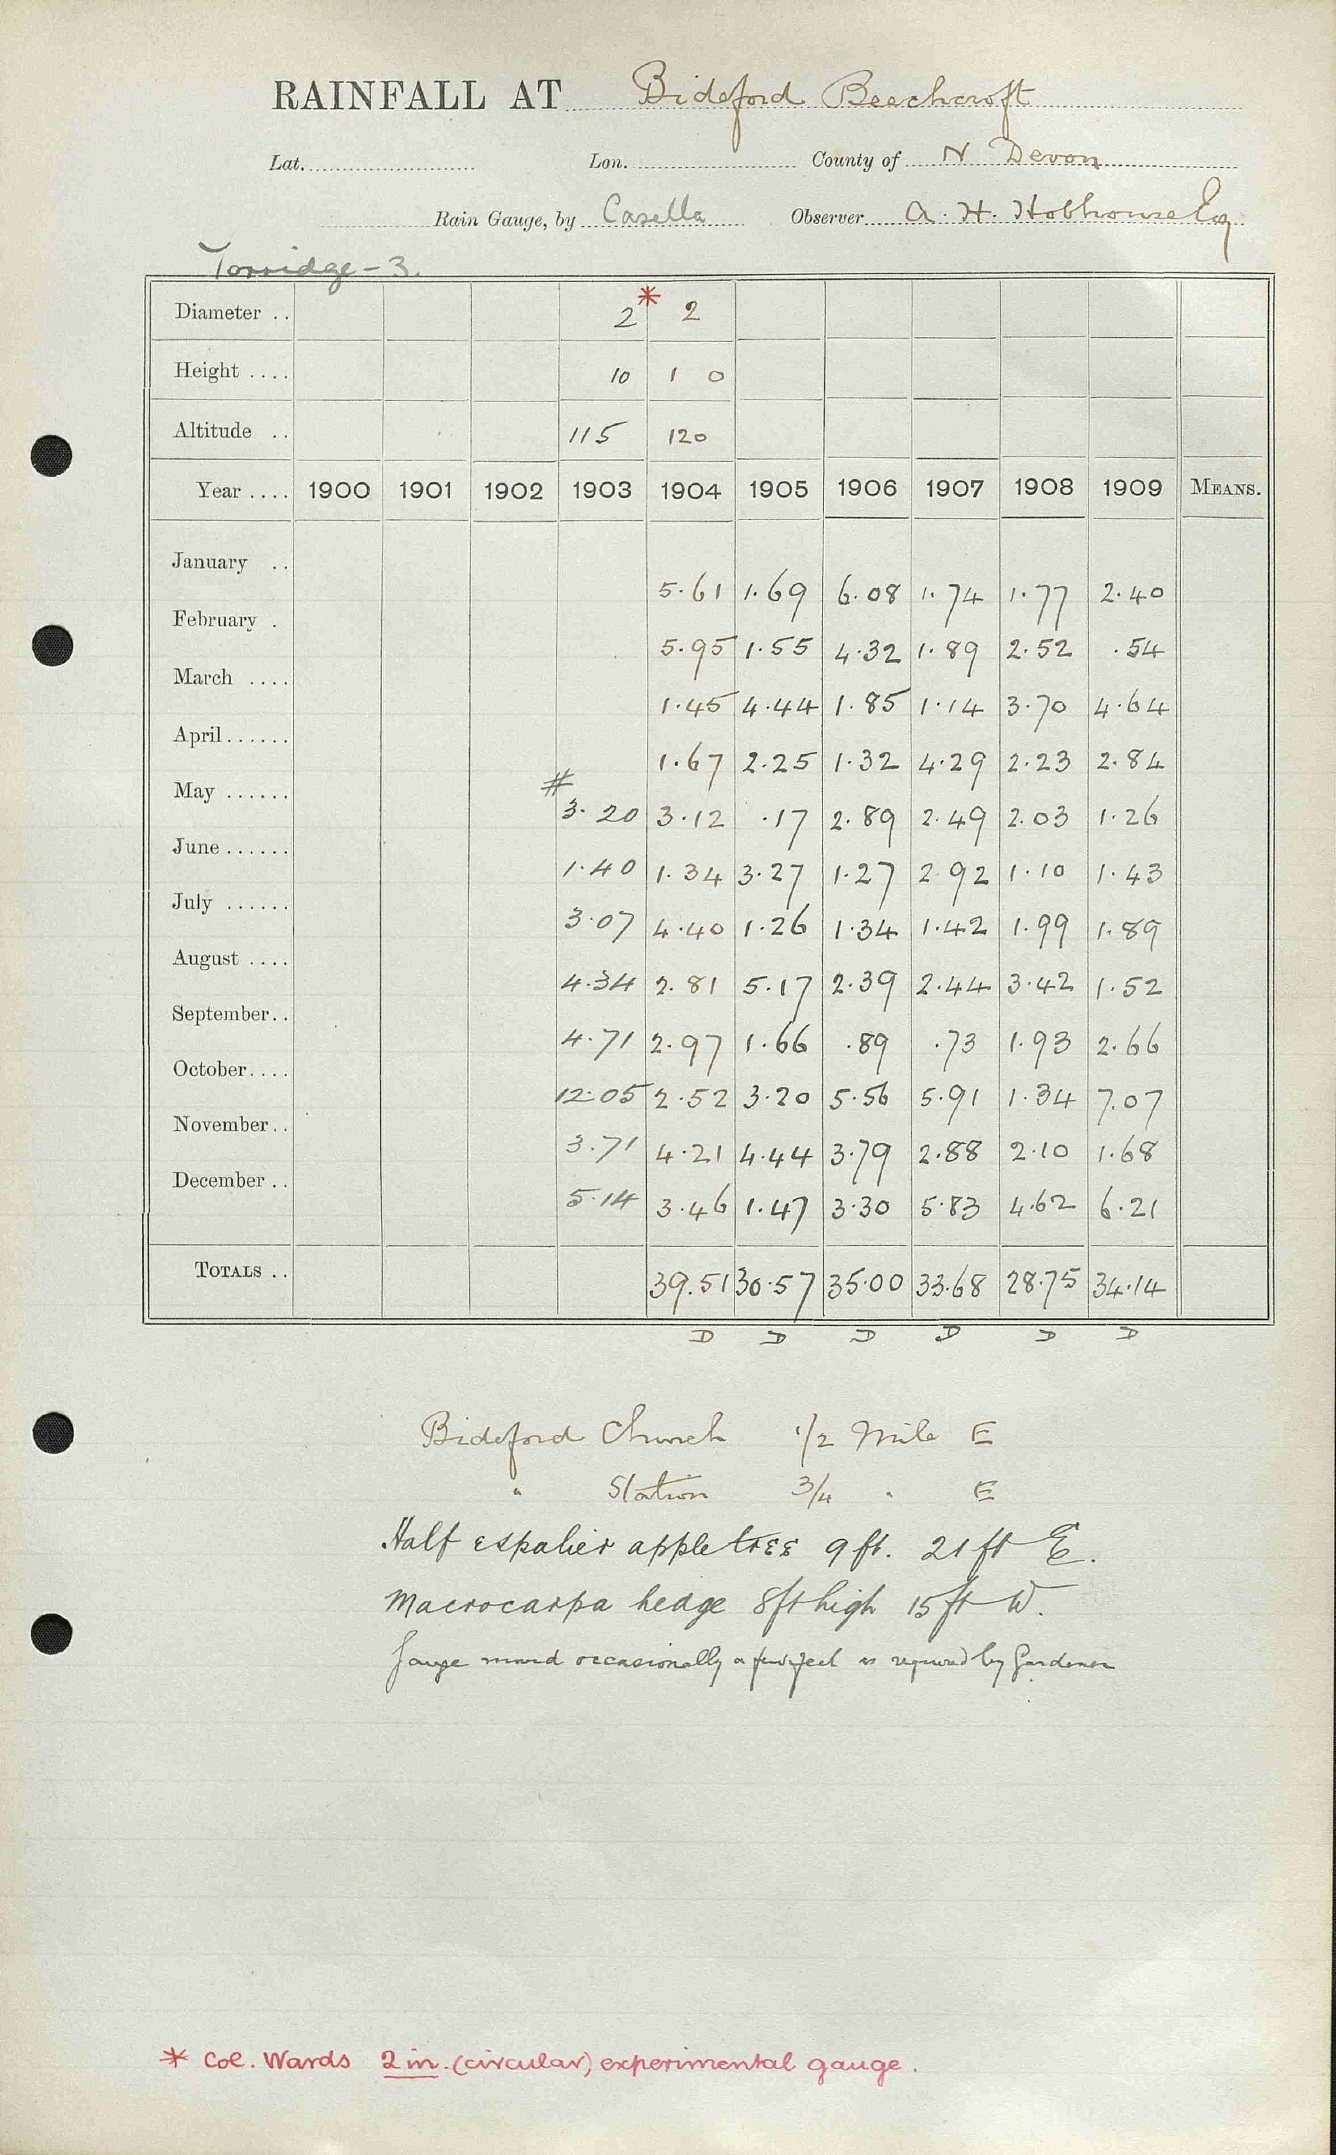 RAINFALL AT Bideford Beechcroft
Lat. Lon. County of N Devon
Rain Gauge, by Casella Observer A. H. Hobhouse Esq
Torridge - 3.
Diameter .. 2 * 2
Height .... 10 1 0
Altitude .. 115 120
Year .... 1900 1901 1902 1903 1904 1905 1906 1907 1908 1909 MEANS.
January .. 5.61 1.69 6.08 1.74 1.77 2.40
February . 5.95 1.55 4.32 1.89 2.52 .54
March .... 1.45 4.44 1.85 1.14 3.70 4.64
April...... 1.67 2.25 1.32 4.29 2.23 2.84
May ...... # 3.20 3.12 .17 2.89 2.49 2.03 1.26
June ...... 1.40 1.34 3.27 1.27 2.92 1.10 1.43
July ...... 3.07 4.40 1.26 1.34 1.42 1.99 1.89
August .... 4.34 2.81 5.17 2.39 2.44 3.42 1.52
September.. 4.71 2.97 1.66 .89 .73 1.93 2.66
October.... 12.05 2.52 3.20 5.56 5.91 1.34 7.07
November.. 3.71 4.21 4.44 3.79 2.88 2.10 1.68
December .. 5.14 3.46 1.47 3.30 5.83 4.62 6.21
TOTALS .. 39.51 30.57 35.00 33.68 28.75 34.14
D D D D D D
Bideford Church 1/2 Mile E
" Station 3/4 " E
Half espalier apple trees 9 ft. 21 ft E.
Macrocarpa hedge 8ft high 15 ft W.
Gauge moved occasionally a few feet as required by Gardener
* Col. Wards 2 in. (circular) experimental gauge.